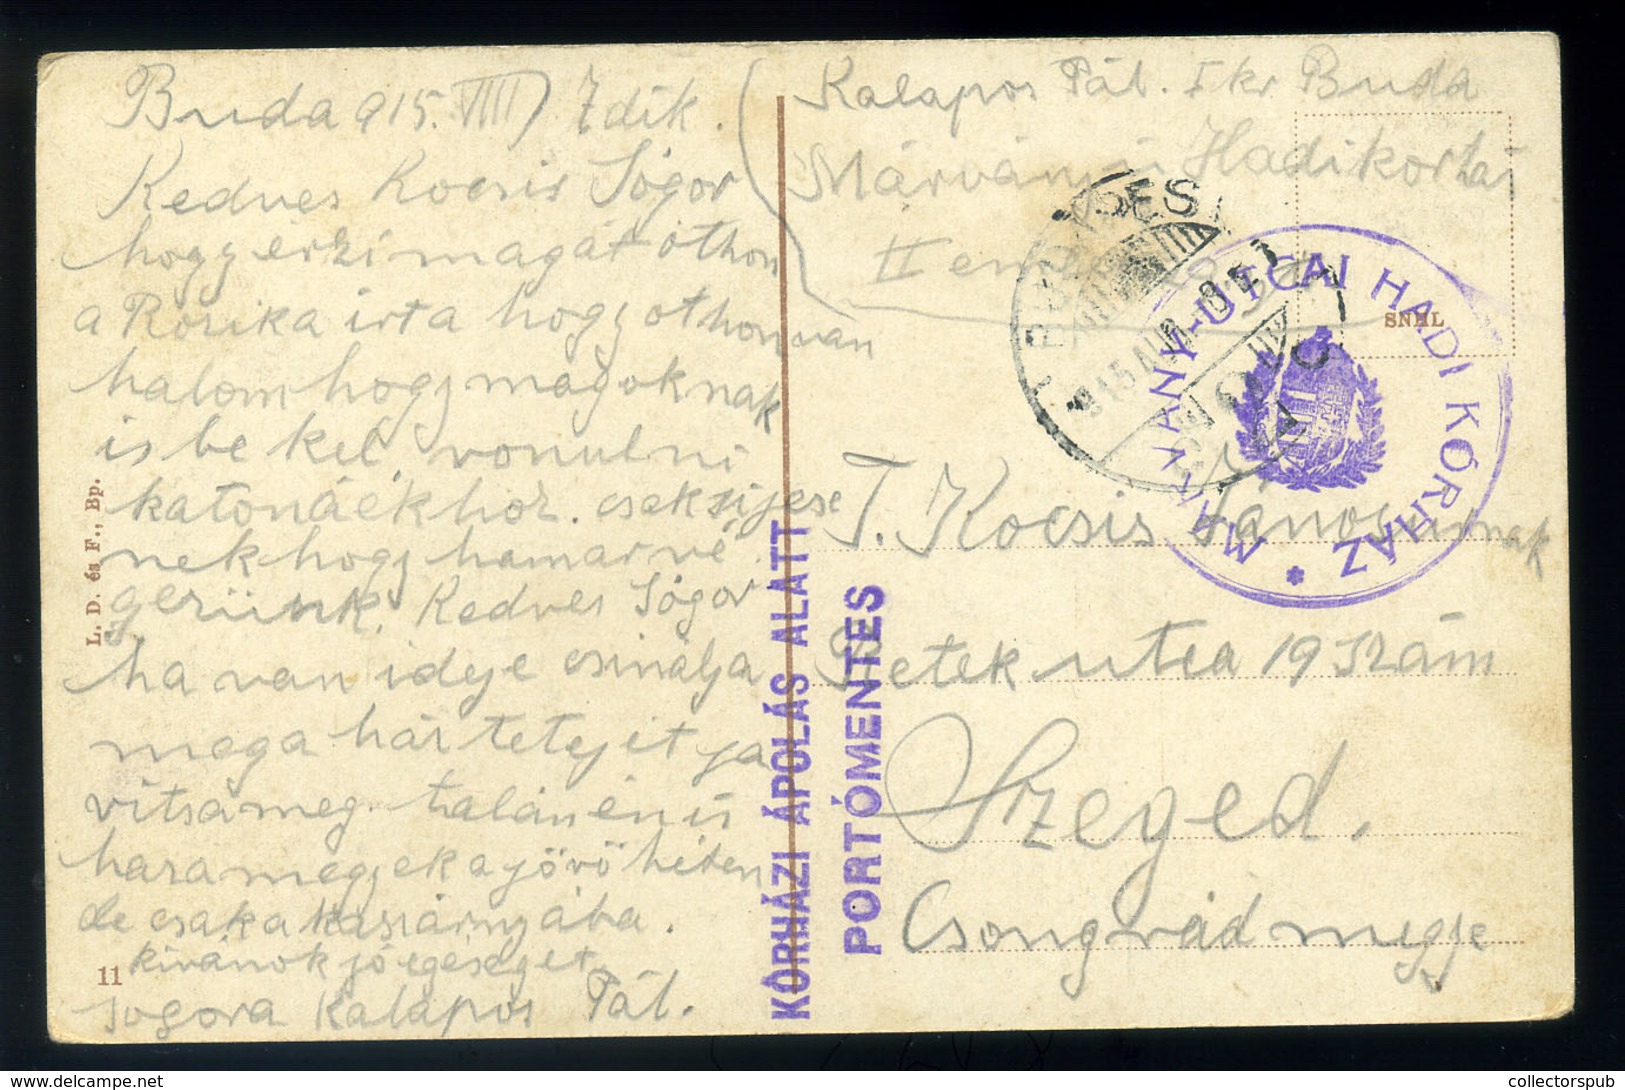 Buda 915. VIII 7dik.
Kedves Kocsis Sógor
hogy érzi magát othon
a Rozika írta hogy othon van
halom hogy magoknak
is be kel vonulni
katonáékhoz. csak sijese
nek hogy hamar vé
gezünk. Kedves Sógor
ha van ideje csinálja
meg a ház tetejit ja
vitsa meg. talán én is
haza megyek a jövö héten
de csak a kaszárnyába.
kivánok jó egéséget
sogora Kalapos Pál.
L. D. és F., Bp.
11
Kalapos Pál. I kr. Buda
Márvány u Hadikorház
II em
BUDAPEST
915 AUG
SNHL
MÁRVÁNY-UTCAI HADI KÓRHÁZ *
T. Kocsis Jánosnak
Retek utca 19 szám
Szeged.
Csongrád megye
KÓRHÁZI ÁPOLÁS ALATT
PORTÓMENTES
collectorspub